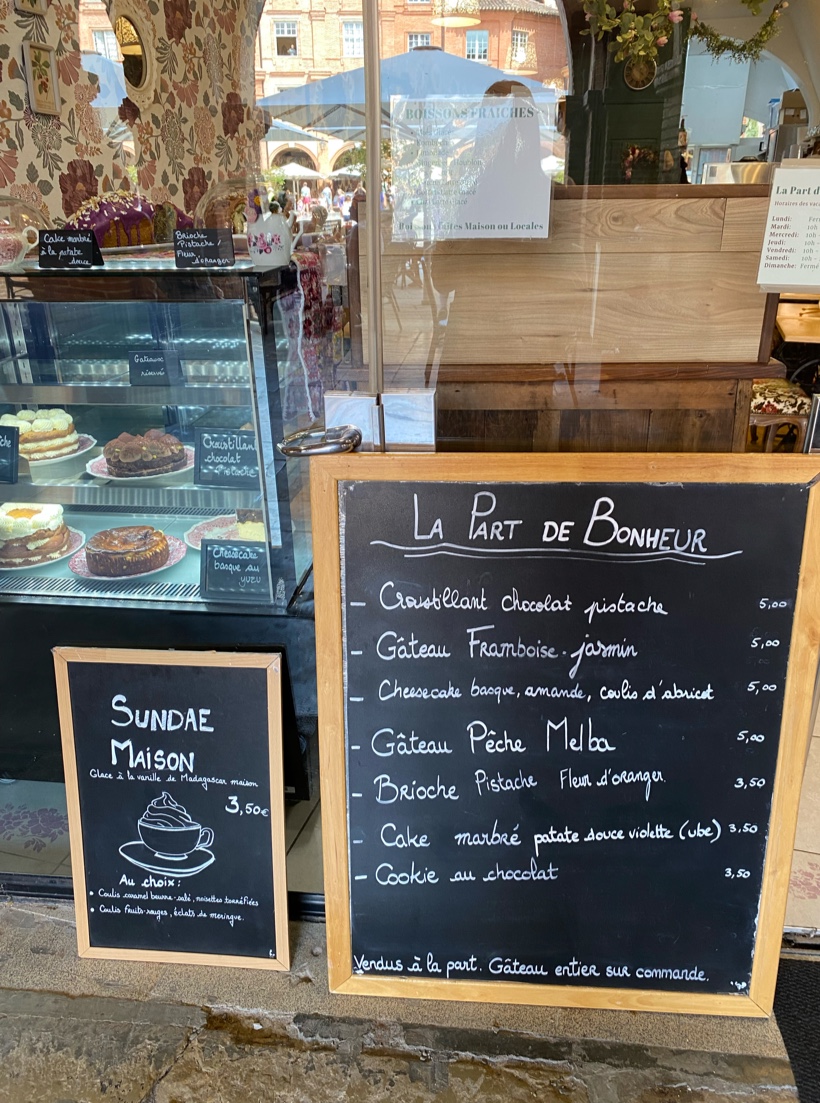 BOISSONS FRAICHES
Boissons faites Maison ou Locales
La Part d
Horaires des vac
Lundi: Fer
Mardi: 10h
Mercredi: 10h
Jeudi: 10h -
Vendredi: 10h -
Samedi: 10h -
Dimanche: Fermé
Cake marbré
à la patate
douce
Brioche
Pistache/
Fleur
d'oranger
Gateaux
réservé
che
Croustillant
chocolat
Pistache
Cheesecake
basque au
yuzu
LA PART DE BONHEUR
- Croustillant chocolat pistache 5,00
- Gâteau Framboise-jasmin 5,00
- Cheesecake basque, amande, coulis d'abricot 5,00
- Gâteau Pêche Melba 5,00
- Brioche Pistache Fleur d'oranger. 3,50
- Cake marbré patate douce violette (ube) 3,50
- Cookie au chocolat 3,50
Vendus à la part. Gâteau entier sur commande.
SUNDAE
MAISON
Glace à la vanille de Madagascar maison
3,50€
Au choix:
• Coulis caramel beurre-salé, noisettes torréfiées
• Coulis fruits-rouges, éclats de meringue.